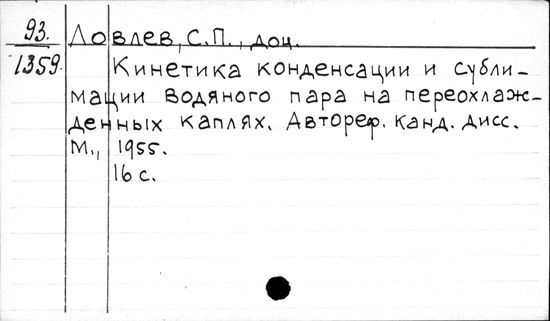 93.
1359.
Ловлев, С.П., доц.
Кинетика конденсации и субли-
мации водяного пара на переохлаж-
денных каплях. Автореф. канд. дисс.
М., 1955.
16 с.